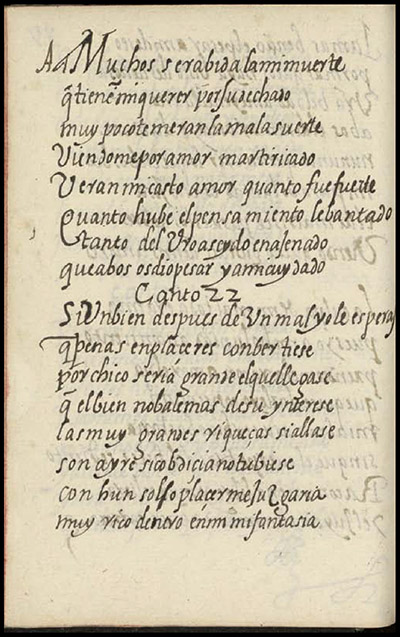 A a Muchos sera bida la mi muerte
q̃ tienẽ mi querer por su dechado
muy poco temeran la mala suerte
Viendome por amor martiriçado
Veran mi casto amor quanto fue fuerte
Quanto hube el pensamiento lebantado
tanto del Vro a seydo enajenado
que a bos os dio pesar y a mi cuydado
Canto 22
Si Un bien despues de Un mal yo le esperas
q̃ penas en plaçeres conbertiese
por chico seria grande el que llegase
q̃ el bien no bale mas de su ynterese
las muy grandes riqueças si allase
son ayre si cobdiçia no tubiese
con hun solo plaçer me juzgaria
muy rico dentro en mi fantasia